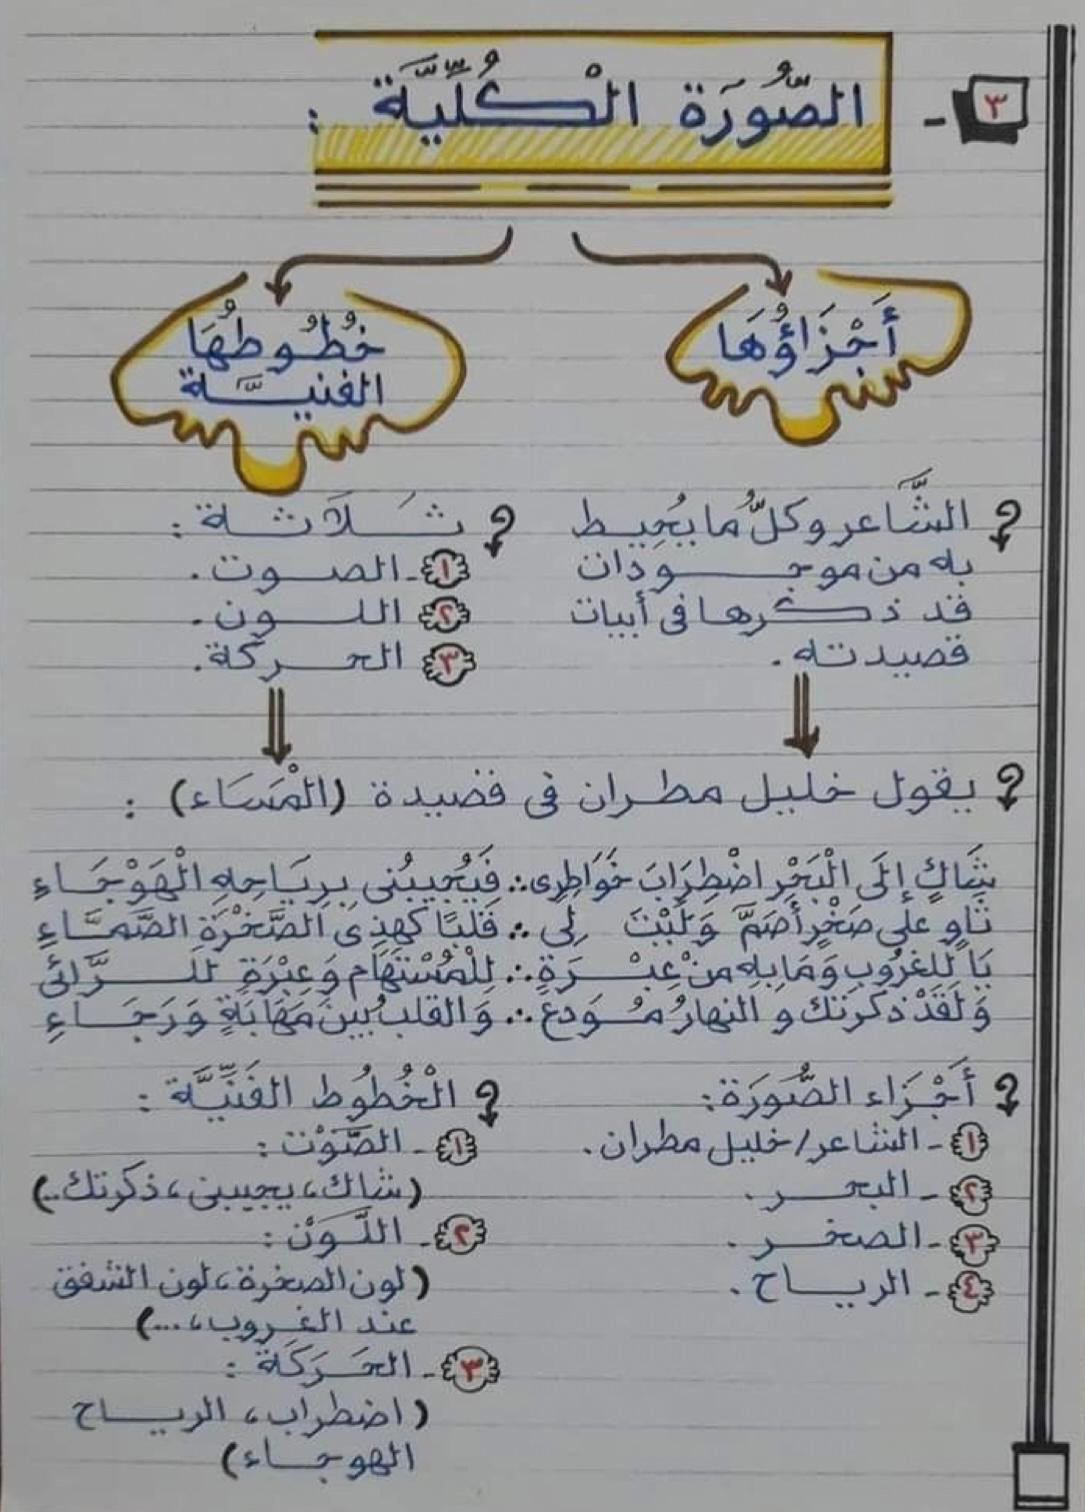 ٣ - الصُّورَة الْكُلِّيَّة :
أَجْزَاؤُهَا
خُطُوطُهَا
الفنيَّة
الشَّاعر وكلُّ ما يُحِيط
به من موجودات
قد ذكرها في أبيات
قصيدته.
ثَلَاثة :
١- الصوت.
٢ اللون.
٣ الحركة.
يقول خليل مطران في قصيدة (الْمَسَاء) :
شَاكٍ إِلَى الْبَحْرِ اضْطِرَابَ خَوَاطِرِى ∴ فَيُجِيبُنى بِرِيَاحِهِ الْهَوْجَاءِ
ثَاوٍ على صَخْرٍ أَصَمَّ وَلَيْتَ لِى ∴ قَلْبًا كهذِى الصَّخْرَةِ الصَّمَّاءِ
يَا لَلغروبِ وَمَا بِهِ مِنْ عِبْرَةٍ ∴ لِلْمُسْتَهَامِ وَعِبْرَةٍ للرَّائى
وَلَقَدْ ذكرتك و النهارُ مُوَدعٌ ∴ وَالقلبُ بينَ مَهَابَةٍ وَرَجَاءِ
أَجْزَاء الصُّورَة:
١- الشاعر/خليل مطران.
٢- البحر.
٣- الصخر.
٤- الرياح.
الْخُطُوط الفَنِّيَّة :
١- الصَّوْت :
(شاك، يجيبنى، ذكرتك..)
٢- اللَّوْن :
(لون الصخرة، لون الشفق
عند الغروب،...)
٣- الحَرَكَة :
(اضطراب، الرياح
الهوجاء)